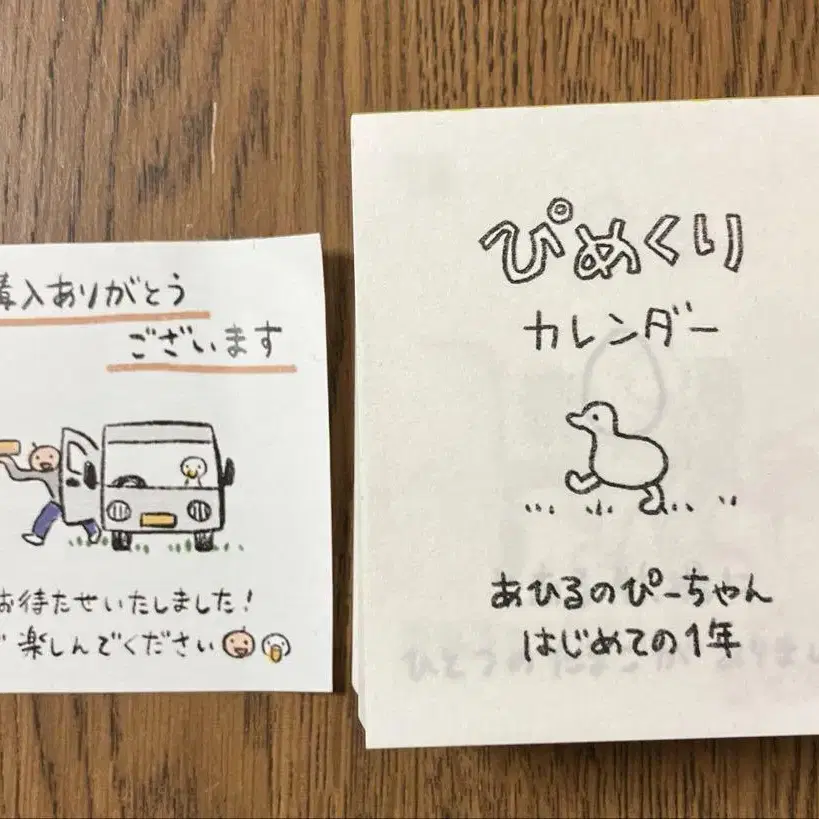 購入ありがとう
ございます
お待たせいたしました!
楽しんでください
ぴめくり
カレンダー
あひるのぴーちゃん
はじめての1年